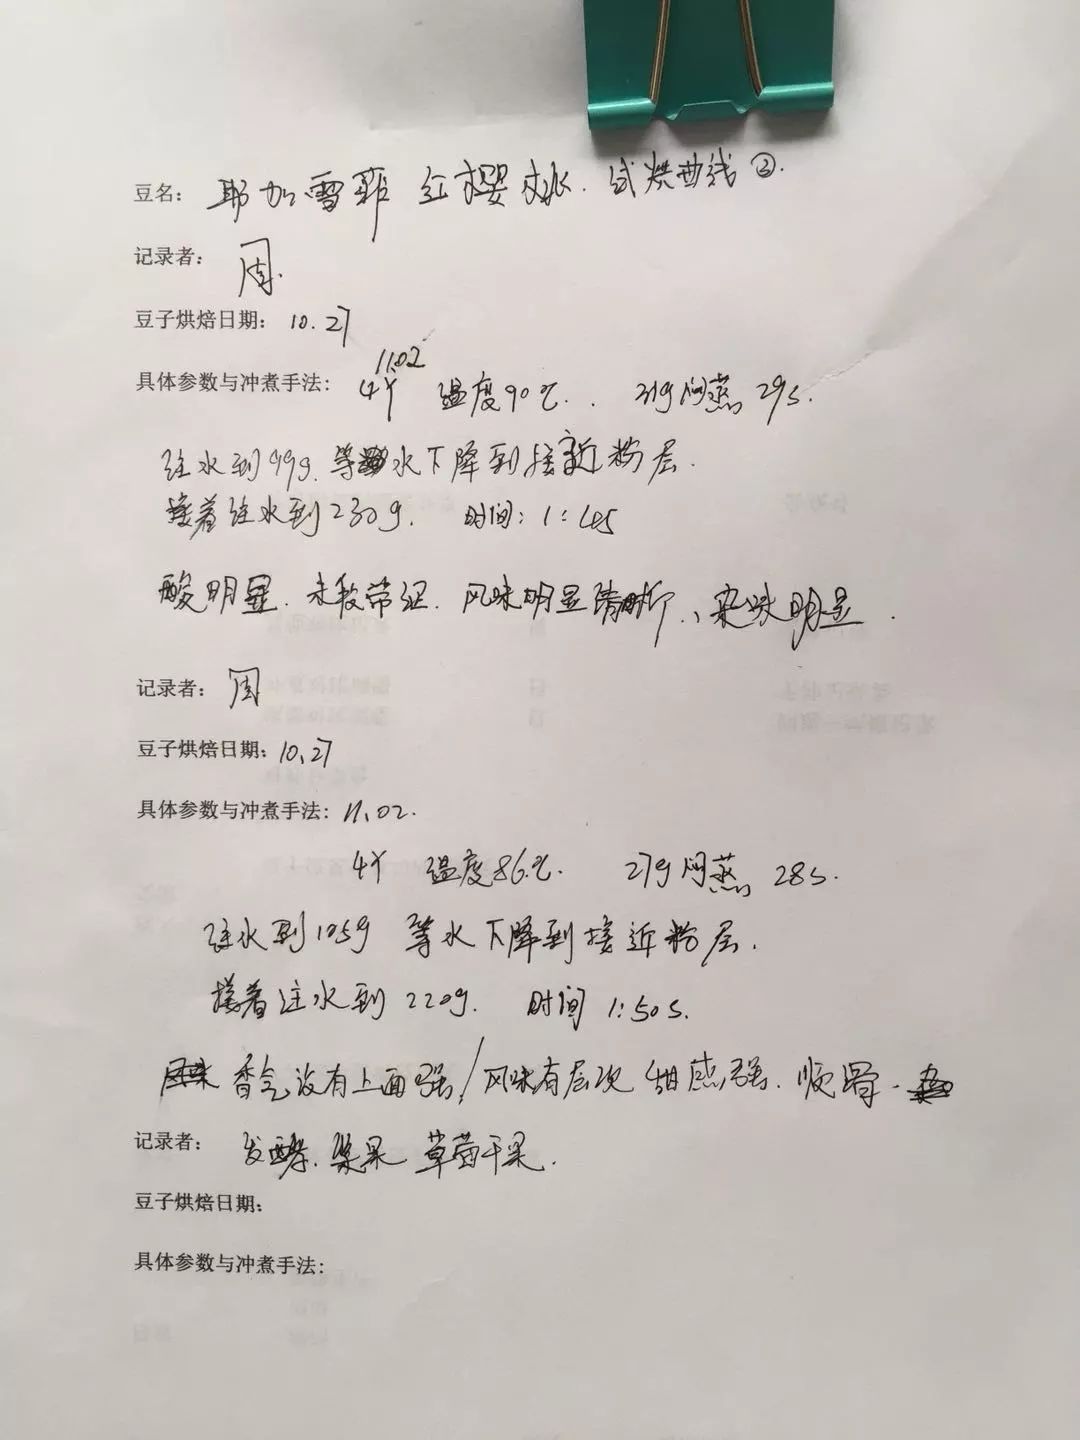 豆名：耶加雪菲 红樱桃. 试烘曲线②.
记录者：周.
豆子烘焙日期：10.27
11.02
具体参数与冲煮手法：4Y 温度90℃.. 31g闷蒸 29s.
注水到99g. 等水下降到接近粉层.
接着注水到230g. 时间：1：45
酸明显. 风味明显清晰、杂味明显.
记录者：周
豆子烘焙日期：10.27
具体参数与冲煮手法：11.02.
4Y 温度86℃. 27g闷蒸 28s.
注水到105g 等水下降到接近粉层.
接着注水到220g. 时间 1:50s.
香气没有上面强/风味有层次 甜感强. 顺滑.
记录者： 发酵. 浆果 草莓干果.
豆子烘焙日期：
具体参数与冲煮手法：